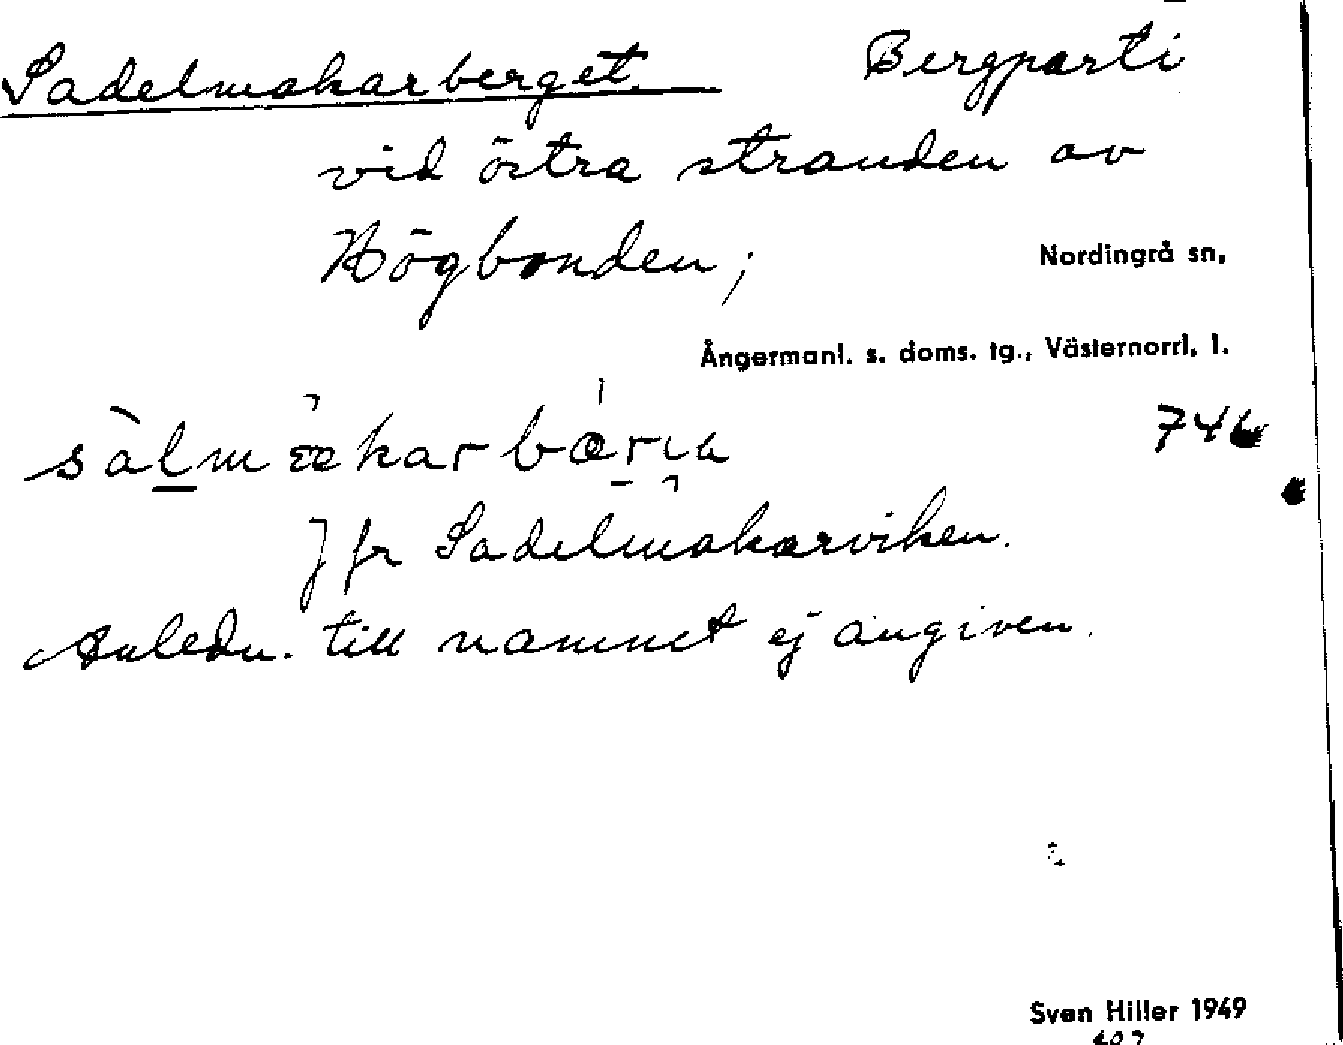 Sadelmakarberget. Bergparti
vid östra stranden av
Högbonden;
Nordingrå sn,
Ångermanl. s. doms. tg., Västernorrl. l.
Jfr Sadelmakarviken.
Anledn. till namnet ej angiven.
Sven Hiller 1949